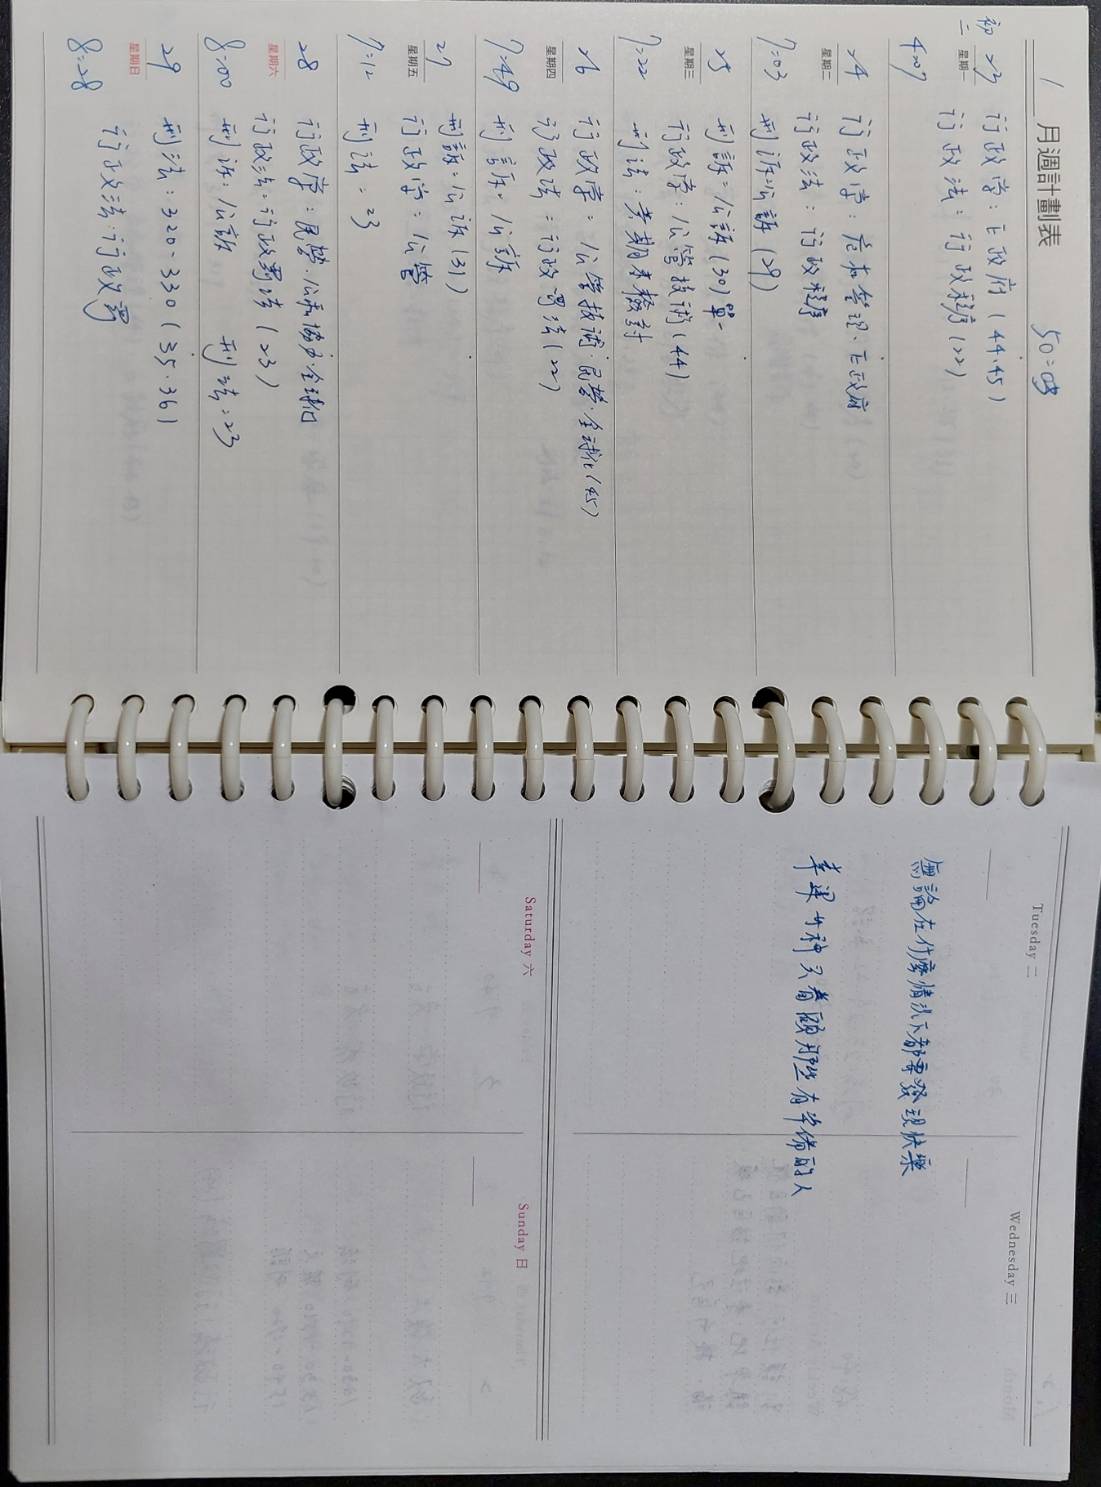 1 月週計劃表 50:03
初二 23 星期一 行政學:E政府(44.45)
行政法:行政程序(22)
4:07
24 星期二 行政學:危機管理、E政府
行政法:行政程序
7:03 刑訴:公訴(29)
25 星期三 刑訴:公訴(30)單一
行政學:公管技術(44)
7:22 刑法:考期末檢討
26 星期四 行政學:公管技術、民營、全球化(45)
行政法:行政罰法(22)
7:49 刑訴:公訴
27 星期五 刑訴:公訴(31)
行政學:公管
7:12 刑法:23
28 星期六 行政學:民營、公私協力、全球化
行政法:行政罰法(23)
8:00 刑訴:公訴 刑法:23
29 星期日 刑法:320-330(35.36)
行政法:行政罰
8:28
Tuesday 二
無論在什麼情況下都要發現快樂
幸運女神只眷顧那些有準備的人
Wednesday 三
Saturday 六
Sunday 日